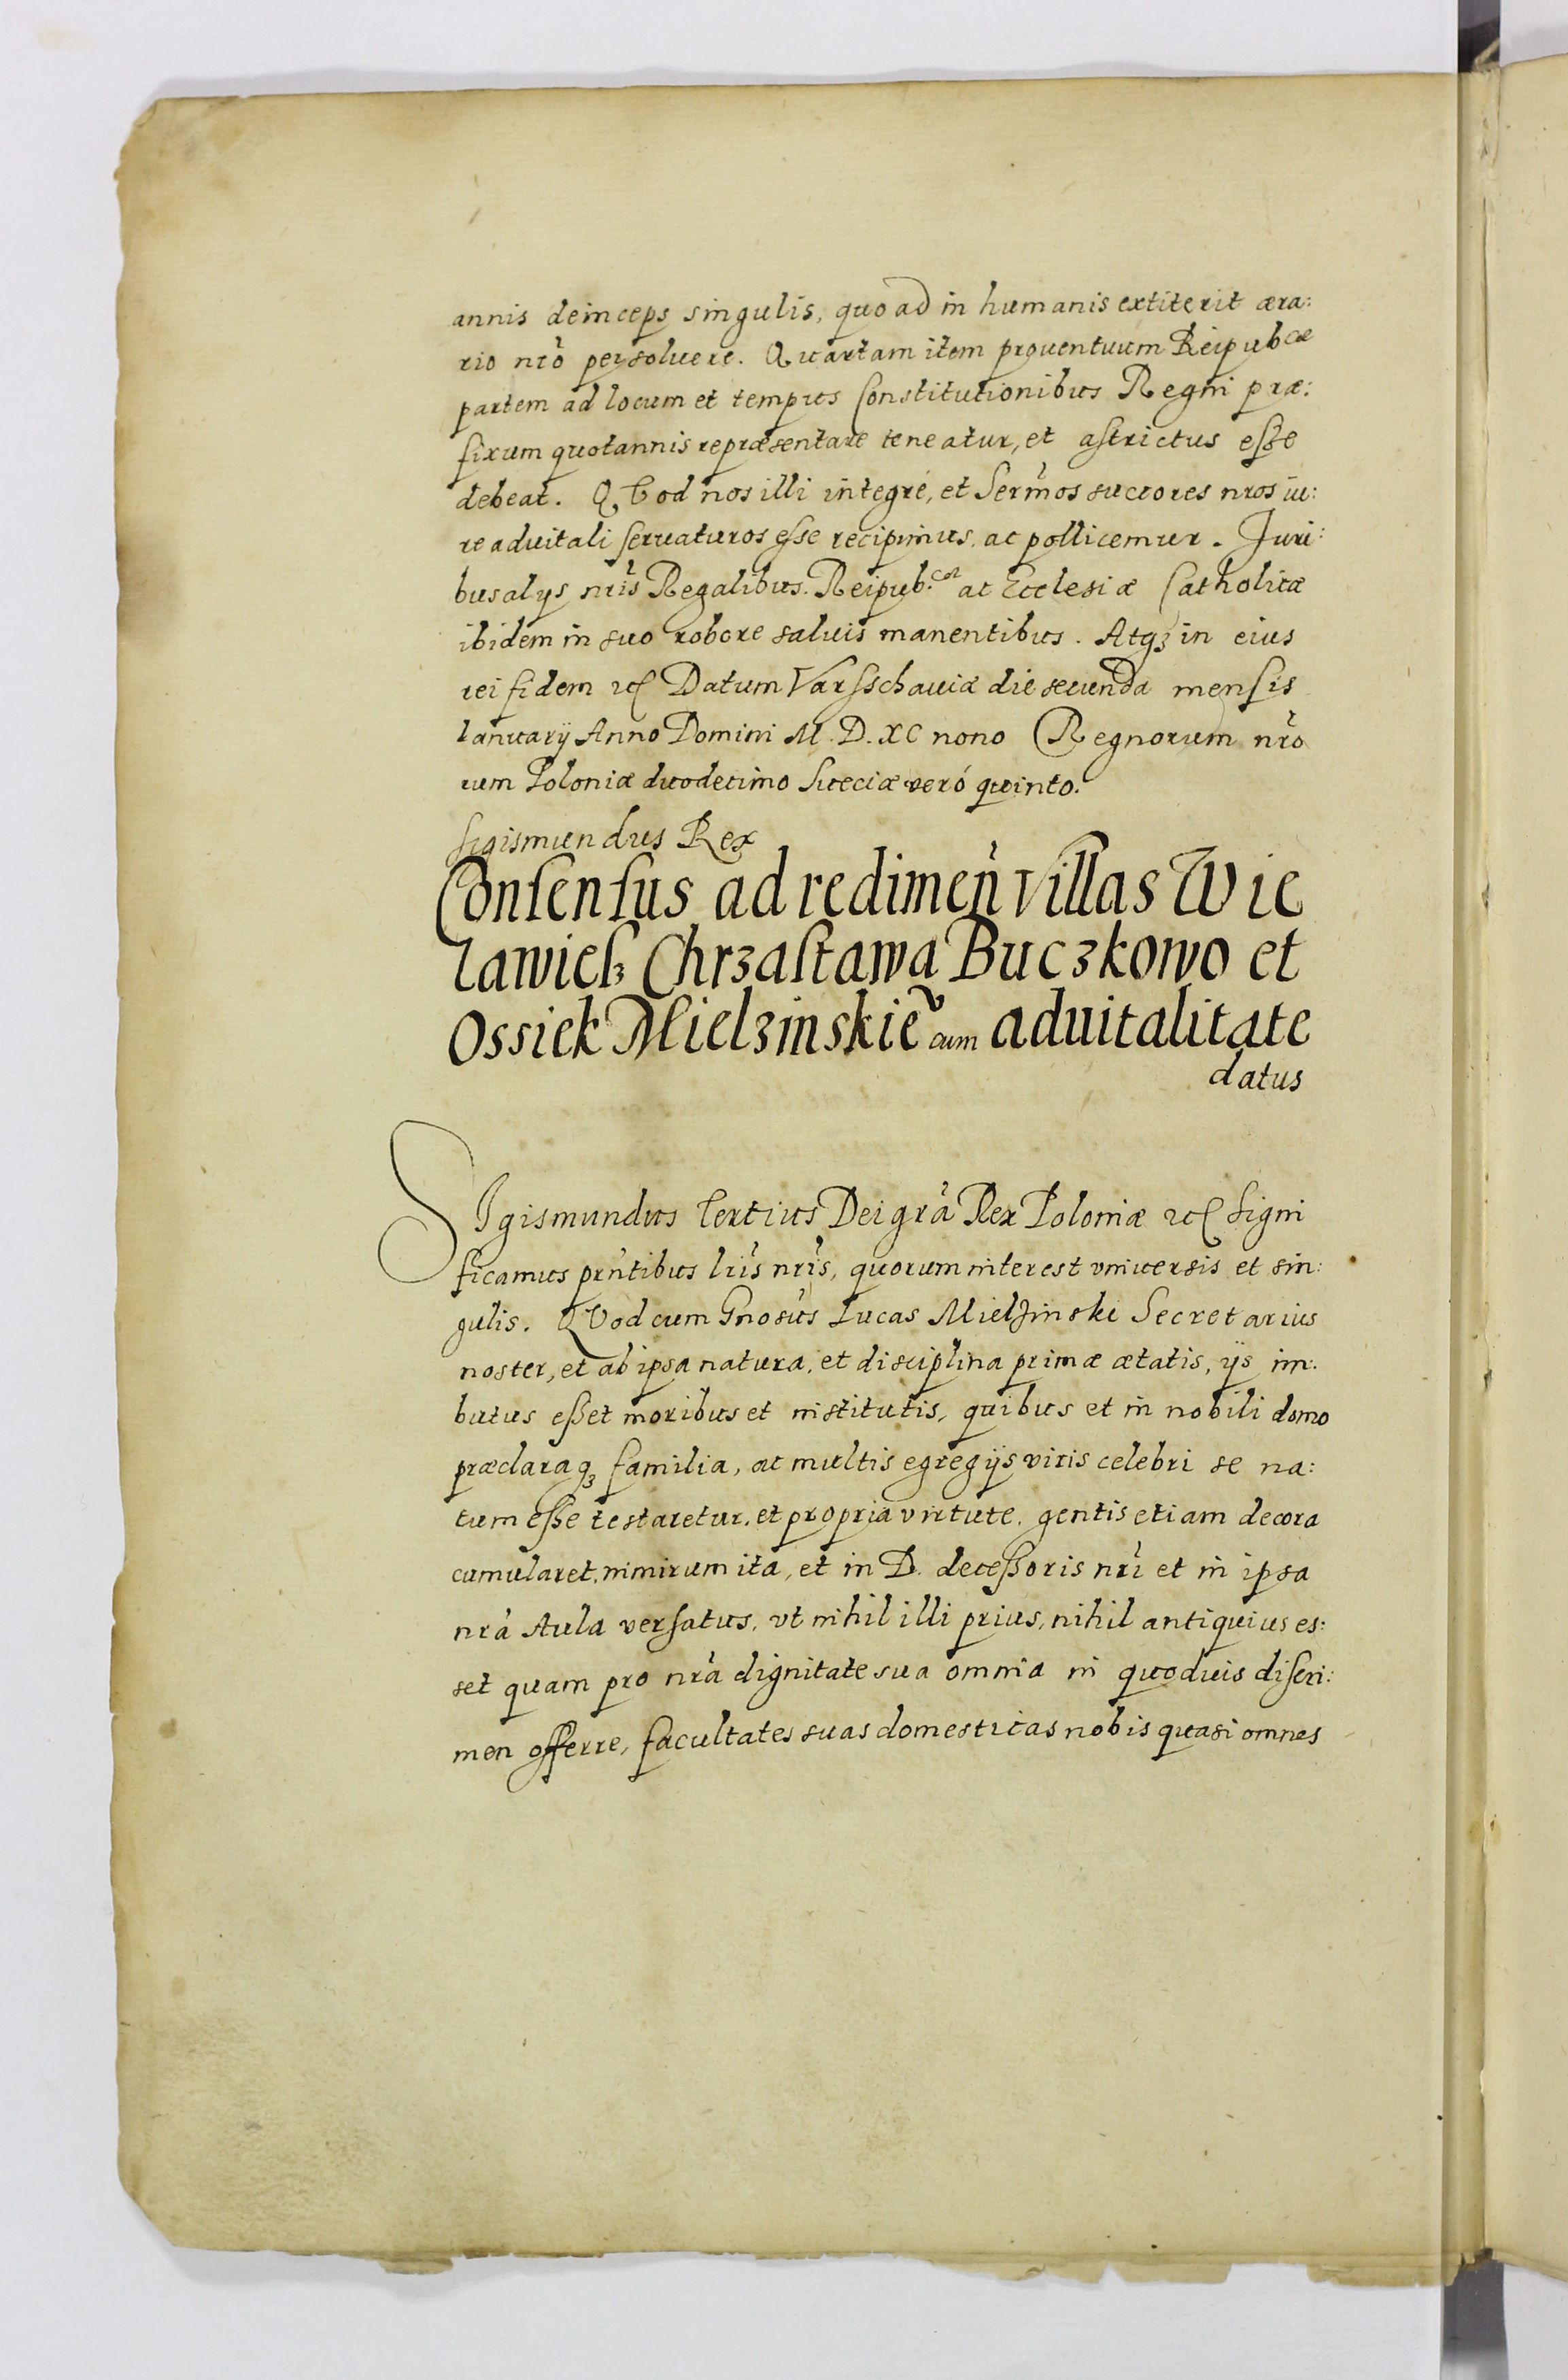 annis deinceps singulis, quo ad in humanis extiterit æra:
rio nrò persoluere. Quartam item prouentuum Reipubcæ
partem ad locum et tempus Constitutionibus Regni præ:
fixum quotannis repræsentare teneatur, et astrictus esse
debeat. QVod nos illi integrè, et Sermòs succores nros iu:
re aduitali seruaturos esse recipimus, ac pollicemur. Juri:
bus alys nrìs Regalibus. Reipub.cæ ac Ecclesiæ Catholicæ
ibidem in suo robore saluis manentibus. Atqȝ in eius
rei fidem etc Datum Varsschauiæ die secunda mensis
Ianuarÿ Anno Domini M. D. XC nono Regnorum nrò
rum Poloniæ duodecimo Sueciæ verò quinto.
Sigismundus Rex
Consensus ad redimeǹ Villas Wie
lawieß Chrzastawa Buczkowo et
Ossiek Mielzinskie cum aduitalitate
datus
SIgismundus Tertius Dei grà Rex Poloniæ etc Signi
ficamus prǹtibus lrìs nrìs, quorum interest vniuersis et sin:
gulis. QVod cum Gnosùs Lucas Mielzinski Secretarius
noster, et ab ipsa natura, et disciplina primæ ætatis, ÿs im:
butus esset moribus et institutis, quibus et in nobili domo
præclaraqȝ familia, ac multis egregÿs viris celebri se na:
tum esse testaretur, et propria virtute, gentis etiam decora
cumularet, nimirum ita, et in D. decessoris nrì et in ipsa
nrà Aula versatus, vt nihil illi prius, nihil antiquius es:
set quam pro nrà dignitate sua omnia in quoduis discri:
men offerre, facultates suas domesticas nobis quasi omnes